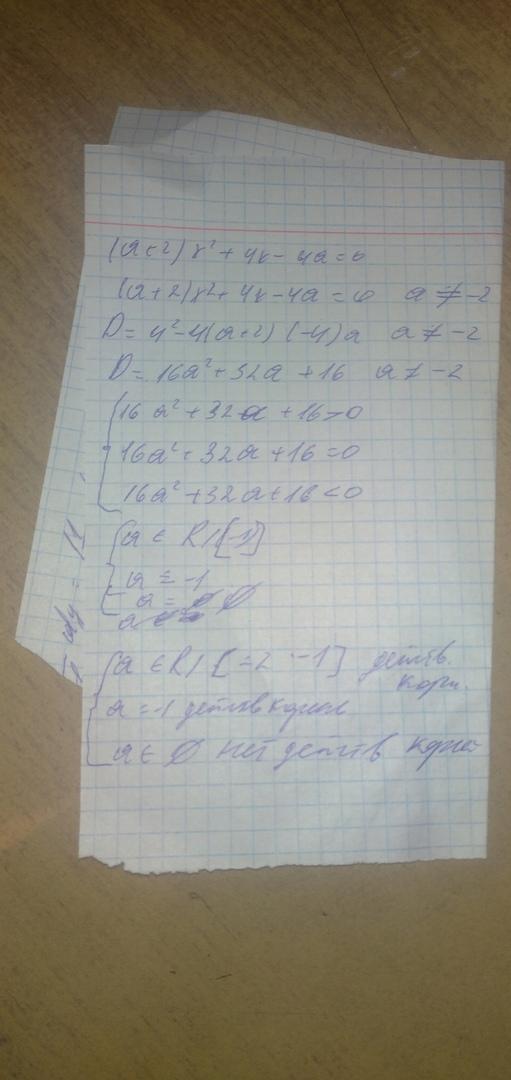 (a+2)x²+4x-4a=0
(a+2)x²+4x-4a=0 a≠-2
D=4²-4(a+2)(-4)a a≠-2
D=16a²+32a+16 a≠-2
16a²+32a+16>0
16a²+32a+16=0
16a²+32a+16<0
a∈R\[-1]
a=-1
a=∅
a∈R\[=2 -1] действ.
корн.
a=-1 действ корня
a∈∅ нет действ корней